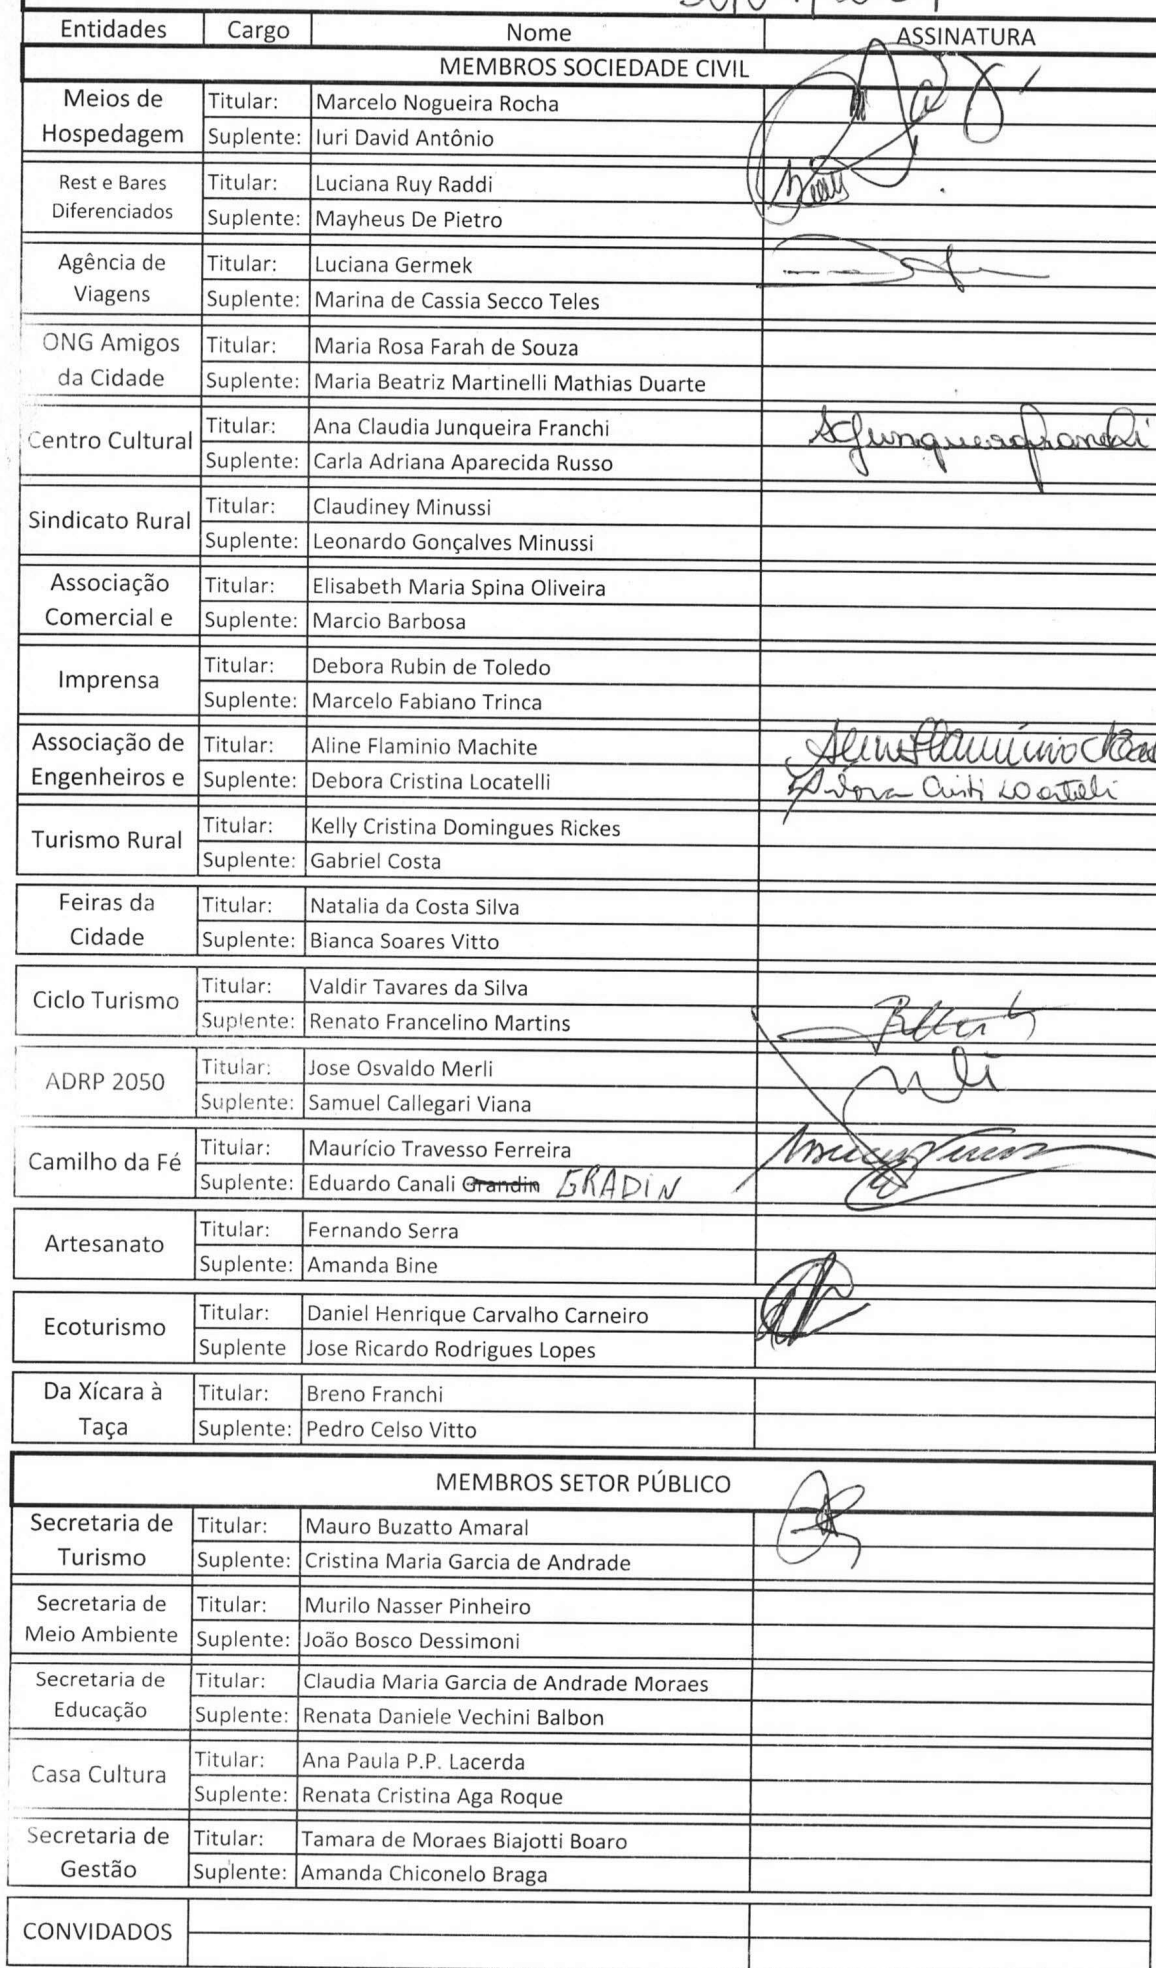 Entidades Cargo Nome ASSINATURA
MEMBROS SOCIEDADE CIVIL
Meios de Hospedagem
Titular: Marcelo Nogueira Rocha
Suplente: Iuri David Antônio
Rest e Bares Diferenciados
Titular: Luciana Ruy Raddi
Suplente: Mayheus De Pietro
Agência de Viagens
Titular: Luciana Germek
Suplente: Marina de Cassia Secco Teles
ONG Amigos da Cidade
Titular: Maria Rosa Farah de Souza
Suplente: Maria Beatriz Martinelli Mathias Duarte
Centro Cultural
Titular: Ana Claudia Junqueira Franchi
Suplente: Carla Adriana Aparecida Russo
Sindicato Rural
Titular: Claudiney Minussi
Suplente: Leonardo Gonçalves Minussi
Associação Comercial e
Titular: Elisabeth Maria Spina Oliveira
Suplente: Marcio Barbosa
Imprensa
Titular: Debora Rubin de Toledo
Suplente: Marcelo Fabiano Trinca
Associação de Engenheiros e
Titular: Aline Flaminio Machite
Suplente: Debora Cristina Locatelli
Turismo Rural
Titular: Kelly Cristina Domingues Rickes
Suplente: Gabriel Costa
Feiras da Cidade
Titular: Natalia da Costa Silva
Suplente: Bianca Soares Vitto
Ciclo Turismo
Titular: Valdir Tavares da Silva
Suplente: Renato Francelino Martins
ADRP 2050
Titular: Jose Osvaldo Merli
Suplente: Samuel Callegari Viana
Camilho da Fé
Titular: Maurício Travesso Ferreira
Suplente: Eduardo Canali Grandin GRADIN
Artesanato
Titular: Fernando Serra
Suplente: Amanda Bine
Ecoturismo
Titular: Daniel Henrique Carvalho Carneiro
Suplente Jose Ricardo Rodrigues Lopes
Da Xícara à Taça
Titular: Breno Franchi
Suplente: Pedro Celso Vitto
MEMBROS SETOR PÚBLICO
Secretaria de Turismo
Titular: Mauro Buzatto Amaral
Suplente: Cristina Maria Garcia de Andrade
Secretaria de Meio Ambiente
Titular: Murilo Nasser Pinheiro
Suplente: João Bosco Dessimoni
Secretaria de Educação
Titular: Claudia Maria Garcia de Andrade Moraes
Suplente: Renata Daniele Vechini Balbon
Casa Cultura
Titular: Ana Paula P.P. Lacerda
Suplente: Renata Cristina Aga Roque
Secretaria de Gestão
Titular: Tamara de Moraes Biajotti Boaro
Suplente: Amanda Chiconelo Braga
CONVIDADOS